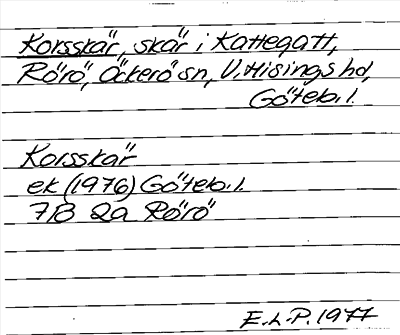 Korsskär, skär i Kattegatt,
Rörö, Öckerö sn, V. Hisings hd,
Göteb. l.
Korsskär
ek (1976) Göteb. l.
7B 2a Rörö
E.L.P. 1977